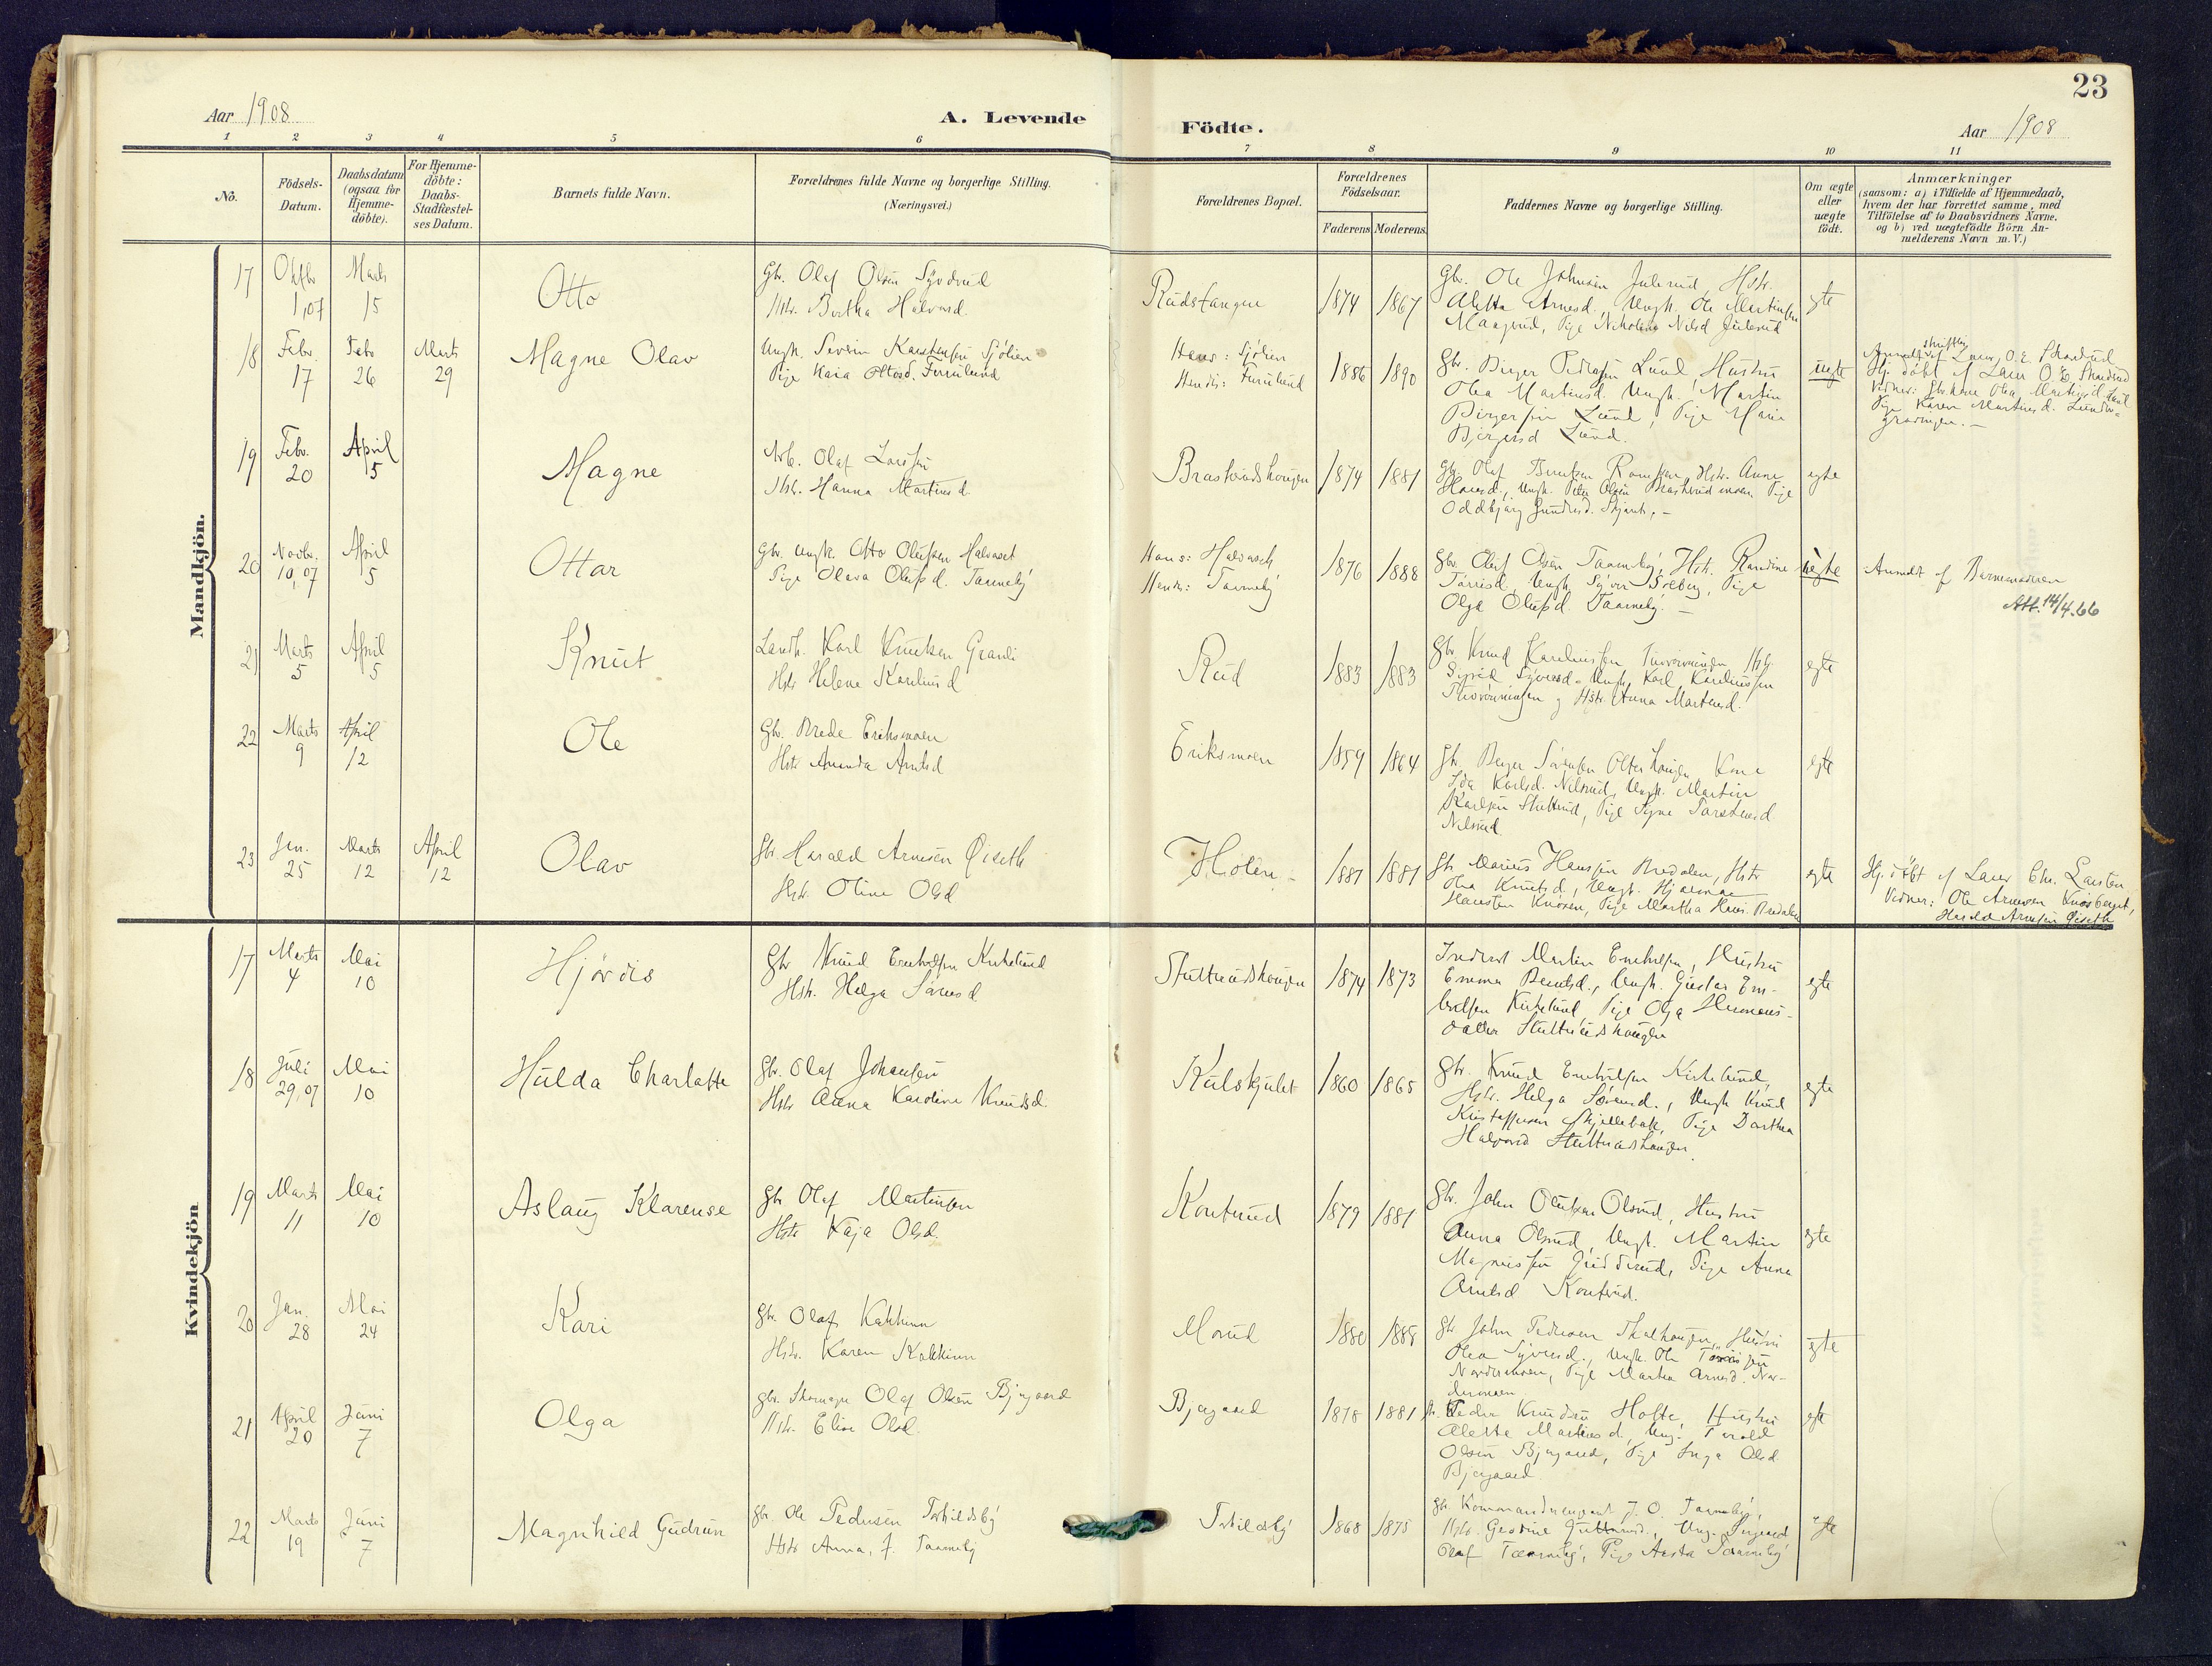 23
Aar 1908
A. Levende
Födte.
Aar 1908
1 2 3 4 5 6 7 8 9 10 11
No.
Födsels-
Datum.
Daabsdatum
(ogsaa for
Hjemme-
döbte).
For Hjemme-
döbte:
Daabs-
Stadfæstel-
ses Datum.
Barnets fulde Navn.
Forældrenes fulde Navne og borgerlige Stilling.
(Næringsvei.)
Forældrenes Bopæl.
Forældrenes
Födselsaar.
Faderens Moderens
Faddernes Navne og borgerlige Stilling.
Om ægte
eller
uægte
födt.
Anmærkninger
(saasom: a) i Tilfælde af Hjemmedaab,
hvem der har forrettet samme, med
Tilföielse af to Daabsvidners Navne.
og b) ved uægtefödte Börn An-
melderens Navn m. V.)
Mandkjön.
17
Oktbr
1,07
Marts
15
Otto
Gbr. Olaf Olsen
Hstr. Bertha Halvorsd.
Rudstangen
1874 1867
Gbr. Ole Johnsen Julerud, Hstr.
Aletta Arnesd., Ungk. Ole Martinsen
Maagerud, Pige Nikoline Nilsd Julerud
egte
18
Febr.
17
Febr
26
Marts
29
Magne Olav
Ungk. Severin Karstensen Sjölien
Pige Kaia Ottosd. Furulund
Hans: Sjölien
Hendes: Furulund
1886 1890
Gbr. Birger Pedersen Lund Hustru
Olea Martinsd. Ungk. Martin
Birgersen Lund, Pige Marie
Birgersd Lund.
uegte
skriftlig
Anmeldt af Lærer O. E. Skardrud
Hj. döbt af Lærer O. E. Skardrud
Vidner: Gbr.kone Olea Martinsd. Lund
Pige Karen Martinsd. Lunder-
19
Febr.
20
April
5
Magne
Arb. Olaf Larsen
Hstr. Hanna Martinsd.
Brastadshaugen
1874 1881
Gbr. Olaf Berntsen, Hstr. Anne
Hansd., Ungk. Peder Olsen Pige
Oddbjørg Gundersd.
egte
20
Novbr.
10,07
April
5
Ottar
Gbr. Ungk. Otto Olufsen Halvaset
Pige Olava Olufsd. Taarneby
Hans:
Hendes: Taarneby
1876 1888
Gbr. Oluf Olsen Taarneby, Hstr. Randine
Torrisd., Ungk. Syver Solberg, Pige
Olga Olufsd. Taarneby.
uegte
Anmeldt af Barnemoderen
Att. 14/4.66
21
Marts
5
April
5
Knut
Landh. Karl Knutsen Granli
Hstr Helene Kareliusd
Rud
1883 1883
Gbr. Knud Kareliussen, Hstr.
Sigrid Syversd. Ungk. Karl Kareliussen
og Hstr. Anna Martinsd.
egte
22
Marts
9
April
12
Ole
Gbr. Brede Eriksmoen
Hstr Amanda Arntsd
Eriksmoen
1859 1864
Gbr. Berger Sörensen Kone
Ida Karlsd. Nilsrud, Ungk. Martin
Karlsen Stuttrud, Pige Signe Torstensd
Nilsrud
egte
23
Jan.
25
Marts
12
April
12
Olav
Gbr. Harald Arnesen Öiseth
Hstr. Oline Olsd
Holen
1881 1881
Gbr. Marius Hanssen Bredalen, Hstr
Olea Knutsd, Ungk. Hjalmar
Hansten Knoxen, Pige Martha Hans. Bredalen
egte
Hj. döbt af Lærer Chr. Larsten.
Vidner: Ole Arnesen Knosberget,
Harald Arnesen Öiseth
Kvindekjön
17
Marts
4
Mai
10
Hjördis
Gbr Knud Embretsen Kirkelund
Hstr. Helga Sörensd
Stuttrudshaugen
1874 1873
Inderst Martin Embretsen, Hustru
Emma Berntsd., Ungk. Gustav Em-
bretsen Kirkelund, Pige Olga Hermans-
datter Stuttrudshaugen
egte
18
Juli
29,07
Mai
10
Hulda Charlotte
Gbr. Olaf Johansen
Hstr Anna Karoline Knudsd.
Kulskjulet
1860 1865
Gbr. Knud Embretsen Kirkelund,
Hstr. Helga Sörensd., Ungk Knud
Kristoffersen Skjellebæk, Pige Dorthea
Halvorsd Stuttrudshaugen
egte
19
Marts
11
Mai
10
Aslaug Klarense
Gbr Olaf Martinsen
Hstr Kaja Olsd.
Kontrud
1879 1881
Gbr. John Olufsen Olsrud, Hustru
Anna Olsrud, Ungk. Martin
Magnussen Gulderud, Pige Anna
Arntsd Kontrud.
egte
20
Jan.
28
Mai
24
Kari
Gbr. Olaf Kakkinn
Hstr. Karen Kakkinn
Morud
1880 1888
Gbr John Pedersen Skalhaugen, Hustru
Olea Syversd., Ungk. Ole
Nordermoen, Pige Martha Arnesd. Nor-
dermoen
egte
21
April
20
Juni
7
Olga
Gbr. Skomager Olaf Olsen Bjergaard
Hstr. Elise Olsd.
Bjergaard
1878 1881
Gbr. Peder Knudsen Hofte, Hustru
Alette Martinsd, Ung. Torold
Olsen Bjergaard, Pige Inga Olsd
Bjergaard
egte
22
Marts
19
Juni
7
Magnhild Gudrun
Gbr. Ole Pedersen Torkildsby
Hstr Anna, f. Taarneby
Torkildsby
1868 1875
Gbr. J. O. Taarneby,
Hstr. Gustine Guttormsd., Ung. Sigurd
Olaf Taarneby, Pige Aasta Taarneby
egte